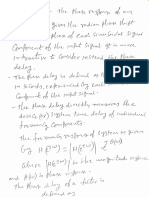 The Phase response of an
gives the radian phase shift
Phase of each sinusoidal
Component of the input signal. It is more
to consider instead the Phase
delay.
The phase delay is defined as the
in seconds, experienced by each
Component of the input signal.
- The phase delay directly measures the
system time delay of individual
frequency Components.
The frequency response of system is given
by H(e^jω) = |H(e^jω)| ∠θ(ω)
where |H(e^jω)| is the magnitude response
and θ(ω) is phase response
The Phase delay of a filter is
defined as